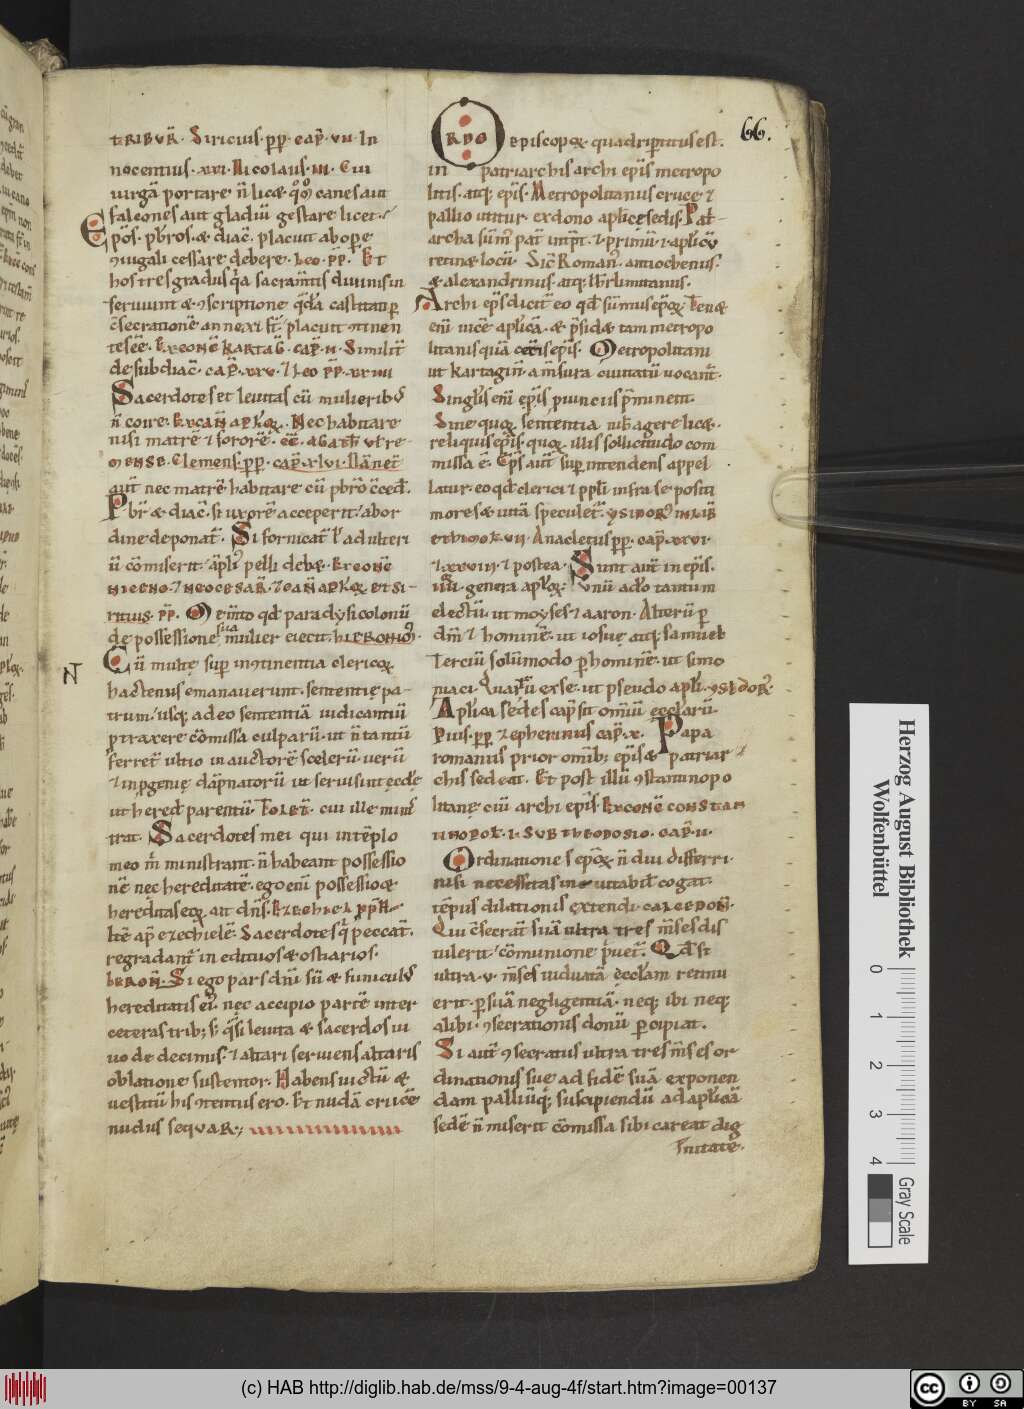 66.
tribuR̄. Siricius. pp̄. cap̄. vii. In
nocentius. xvi. Nicolaus. iii. Cui
uirgā portare n̄ licet
canes aut
falcones aut gladiū gestare licet.
Ep̄os. pb̄ros. & diac̄. placuit ab opere
ꝯiugali cessare debere. Leo. pp̄. Et
hos tres gradus q̄a sacram̄tis diuinis in
seruiunt & ꝯscriptione
castitatis p
c̄secrationē anno xi
placuit ꝯtinen
tesēē. Ex conē kartaḠ. cap̄. ii. Similit̄
de subdiac̄. cap̄. xxv. & Leo pp̄. xxiiii
Sacerdotes et leuitas cū mulierib;
n̄ coire. Ex can̄ ap̄l'oꝝ. Nec habitare
nisi matrē & sororē. eē. agath ut re-
mense. Clemens. pp̄. cap̄. xlvi. Nannet̄
aut̄ nec matrē habitare cū pbr̄o c̄ced̄.
Pbr̄ & diac̄. si uxorē acceperit. abor
dine deponat̄. Si fornicat̄ l' adulteri
ū cōmiserit. āpli' pelli debet. Ex conē
niceno. & neocesaR̄. & can̄ ap̄l'oꝝ. et si-
ricius. pp̄. Memto qd̄ paradysi colonū
de possessione sua mulier eiecit. hieronim'.
Cū multę sup incontinentia clericoꝝ
N
hactenus emanauerunt. sententię pa-
trum. usq; adeo sententiā iudicantiū
ꝓtraxere cōmissa culparū. ut n̄ tantū
ferret̄ ultio in auctorē scelerū. uerū
& in ꝓgenię dāpnatorū ut seruisint ęccłe
ut hered̄ parentū. Toleт̄. cui ille minist
trat. Sacerdotes mei qui in tēplo
meo m̄ ministrant. n̄ habeant possessio
nē nec hereditatē. ego enī possessio &
hereditas eoꝝ. ait dn̄s. Ezechiel pph̄-
łtē ap̄ ezechielē. Sacerdotes q̄ peccāt.
regradant̄ in edituos & ostiarios.
IeRoN̄. Si ego pars dn̄i sū & funicul'
hereditatis ei'. nec accipio partē inter
ceteras trib;. s; q̄si leuita & sacerdos ui
uo de decimis. & altari seruiens altaris
oblatione sustentor. Habens uictū &
uestitū his ꝯtentus ero. Et nudā crucē
nudus sequaR;
ORDO episcopoꝝ. quadripartitus est.
in patriarchis archi ep̄is metropo
litis. atq; ep̄is. Metropolitanus cruce &
pallio utitur. ex dono aplicę sedis. Patī
archa sūm' pat̄ int̄pt̄. & primū. i. apl'icū
retinet locū. Sic̄ Roman'. antiochenus.
& alexandrinus. atq; Ihr̄limitanus.
Archi ep̄s dicit̄ eo qd̄ sūmus ep̄oꝝ. Tenet
enī uicē apl'icā. & p̄sidet tam metropo
litanis quā ceteris ep̄is. Metropolitani
ut kartaginī. a m̄sura ciuitatū uocant̄.
Singl'is enī ep̄is ꝓuinciis p̄minent.
Sine quoꝝ sententia nich agere licet.
reliquis ep̄is. quoꝝ. illis sollicitudo com
missa ē. Ep̄s aut̄ sup intendens appel
latur. eo qd̄ clerici & ppl'i infra se positi
mores & uitā speculet̄. ysidor' in lib̄
ethimol. vii. Anacletus pp̄. cap̄. xxvi.
& xxviii. & postea. Sunt aut̄ in ep̄is.
iiii. genera ap̄l'oꝝ. Vnū a do tantum
electū. ut moyses & aaron. Alterū p
dm̄ & hominē. ut iosue atq; samuel
Terciū solūmodo p hominē. ut simo
niaci. Quartū ex se. ut pseudo apl'i. ysidor'.
Apl'ica sedes cap̄ sit omīū ecclesiarū.
Pius. pp̄. & epherinus cap̄. x. Papa
romanus prior omīb; ep̄is & patriar
chis sedeat. Et post illū ꝯstantinopo
litanę ciū archi ep̄is. Ex conē constan
tinopoł. i. sub theodosio. cap̄. ii.
Ordinationes ep̄oꝝ n̄ diu differri.
nisi necessitas in euitabil' cogat.
tēpus dilationis extendi. calcedoN̄.
Qui c̄secrat̄ suā ultra tres m̄ses dis
tulerit. cōmunione p̄uet̄. Qd̄ si
ultra. v. m̄ses uiduatā ęccl'am retinu
erit. p suā negligentiā. neq; ibi neq;
alibi. ꝯsecrationis donū pcipiat.
Si aut̄ ꝯsecratus ultra tres m̄ses or
dinationis sue ad fidē suā exponen
dam palliūq; suscipiendū ad apl'icā
sedē n̄ miserit cōmissa sibi careat dig
nitate.
Herzog August Bibliothek
Wolfenbüttel
0 1 2 3 4
Gray Scale
(c) HAB http://diglib.hab.de/mss/9-4-aug-4f/start.htm?image=00137
cc BY SA